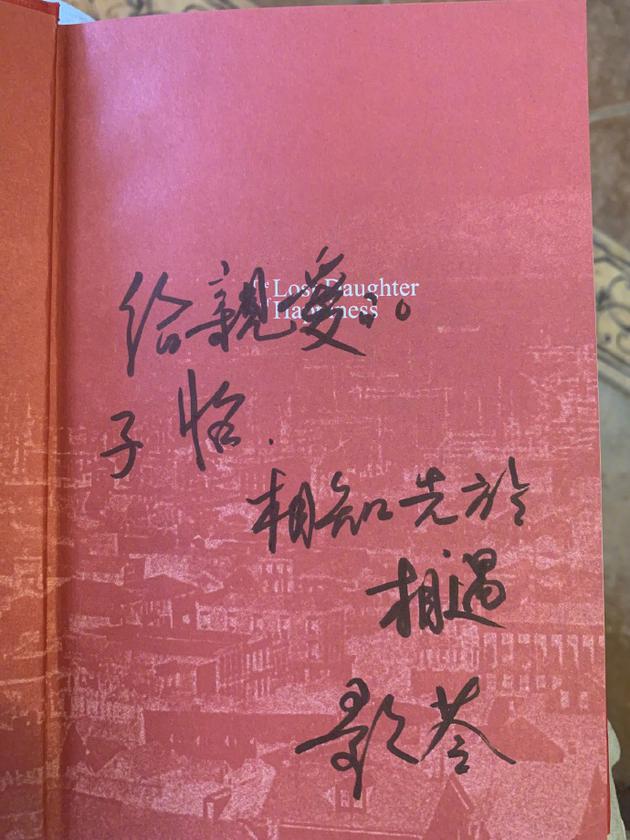 The Lost Daughter
of Happiness
給親愛的
子怡.
相知先於
相遇
歌苓